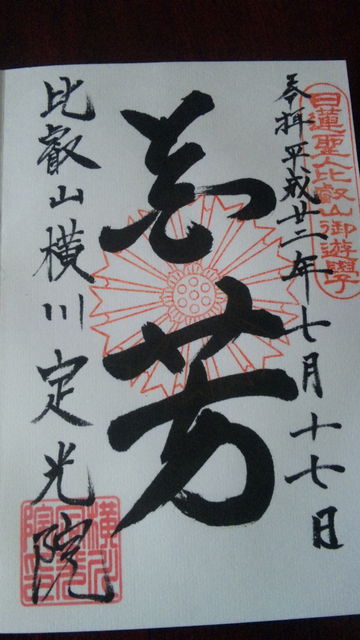 日蓮聖人比叡山御遊學
奉拝 平成廿二年七月十七日
志芳
比叡山横川 定光院